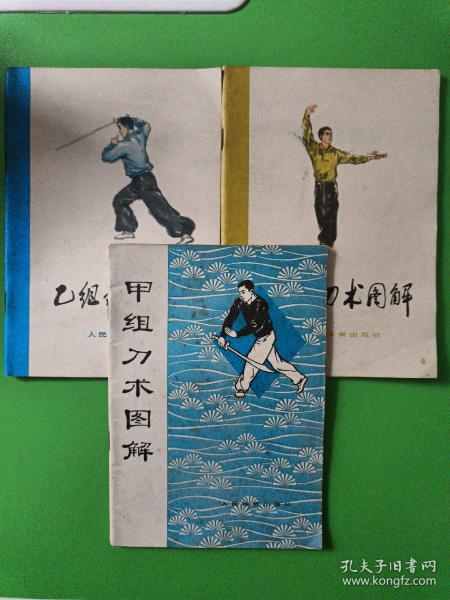 乙组
人民
刀术图解
体育出版社
甲组刀术图解
人民体育出版社
孔夫子旧书网
www.kongfz.com